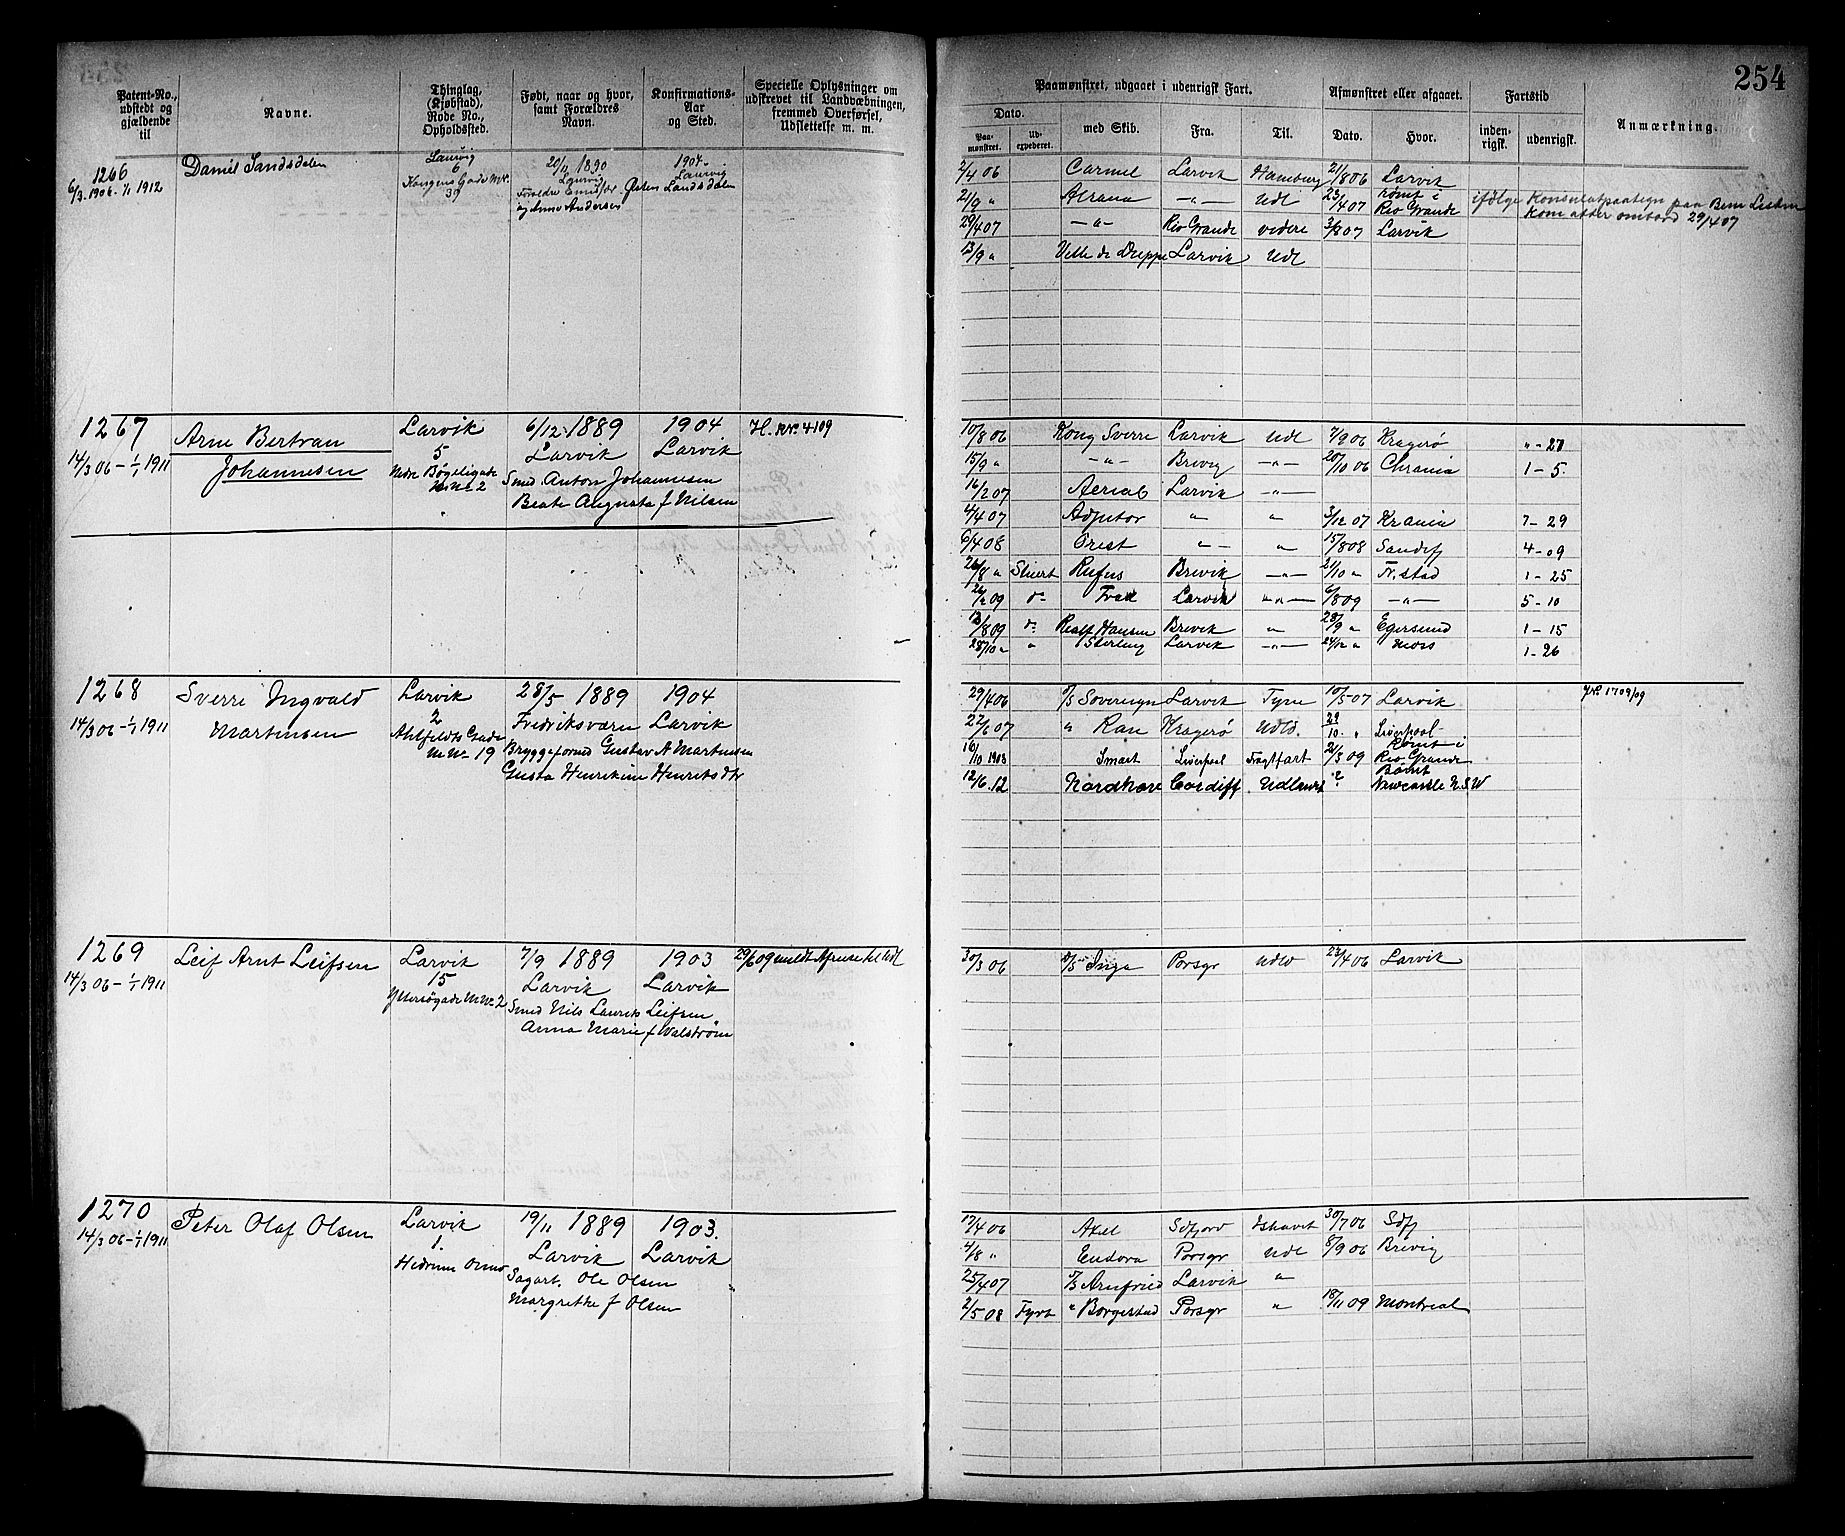 254
Patent-No., udstedt og gjældende til
Navne.
Thinglag, (Kjøbstad), Rode No., Opholdssted.
Født, naar og hvor, samt Forældres Navn.
Konfirmations-Aar og Sted.
Specielle Oplysninger om udskrevet til Landvæbningen, fremmed Overførsel, Udslettelse m. m.
Paamønstret, udgaaet i udenrigsk Fart.
Afmønstret eller afgaaet.
Fartstid
Anmærkning.
Dato.
Paamønstret.
Udexpederet.
med Skib.
Fra.
Til.
Dato.
Hvor.
indenrigsk.
udenrigsk.
1266
6/3 1906 - 1/1 1912
Daniel Sandsdalen
Laurvig
6
Kongens Gade M.N.
39
20/11 1890
Laurvig
og Anna Andersen
1904
Laurvig
Østen Sandsdalen
2/4 06 Carmel Larvik Hamburg 21/8 06 Larvik
21/9 " Atrana -"- Udl 23/4 07 rømt i Rio Grande ifølge Konsulatpaategn paa
kom atter ombord 29/4 07
29/4 07 -"- Rio Grande videre 3/8 07 Larvik
13/9 " Ville de Dieppe Larvik Udl
1267
14/3 06 - 1/1 1911
Arne Bertran
Johannesen
Larvik
5
Nedre Bøgeligade
M.No 2
6/12 1889
Larvik
Smed Anton Johannesen
Beate Augusta f Nilsen
1904
Larvik
H. No. 4109
10/8 06 Kong Sverre Larvik Udl 7/9 06 Kragerø "-27
15/9 " -"- Brevig -"- 20/10 06 Chrania 1-5
16/2 07 Aerial Larvik -"-
4/4 07 Adjutor " " 3/12 07 Krania 7-29
6/4 08 Orest -"- " 15/8 08 Sandefj 4-09
26/8 " Stuert Rufus Brevik -"- 21/10 " Fr.stad 1-25
26/2 09 do Larvik -"- 6/8 09 -"- 5-10
13/8 09 do Realf Hansen Brevik " 28/9 " Egersund 1-15
28/10 " " Sterling Larvik -"- 24/12 " Moss 1-26
1268
14/3 06 - 1/1 1911
Sverre Ingvald
Martinsen
Larvik
2
Ahlfeldts Gade
M.No 19
28/5 1889
Fredriksværn
Bryggeformd Gustav A Martinsen
Gusta Henrikine Henriksdtr
1904
Larvik
29/4 06 S/S Sovereign Larvik Tyne 10/5 07 Larvik J.No 1709/09
22/6 07 " Ran Kragerø Udld. 29/10 " Liverpool
161/10 1903 Smart Liverpool Fragtfart 21/3 09 Rømt i Rio Grande
12/6.12 Nordhav Cardiff Udlandet ? Rømt Newcastle N.S.W
1269
14/3 06 - 1/1 1911
Leif Arnt Leifsen
Larvik
15
Yttersøgade M.No 2
7/9 1889
Larvik
Smed Nils Laurits Leifsen
Anna Marie f Walstrøm
1903
Larvik
29/6 09 meldt Afreise til Udl
30/3 06 S/S Inga Porsgr Udld 23/4 06 Larvik
1270
14/3 06 - 1/1 1911
Peter Olaf Olsen
Larvik
1.
19/11 1889
Larvik
Sagarb. Ole Olsen
Margrethe f Olsen
1903.
Larvik
17/4 06 Axel Sdfjord Ishavet 30/7 06 Sdfj
4/8 " Eudora Porsgr Udl 8/9 06 Brevig
25/4 07 S/S Arnfried Larvik "
2/5 08 Fyrb " Borgestad Porsgr " 18/11 09 Montreal